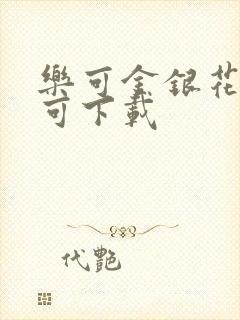 樂可金銀花
可下載
代艷